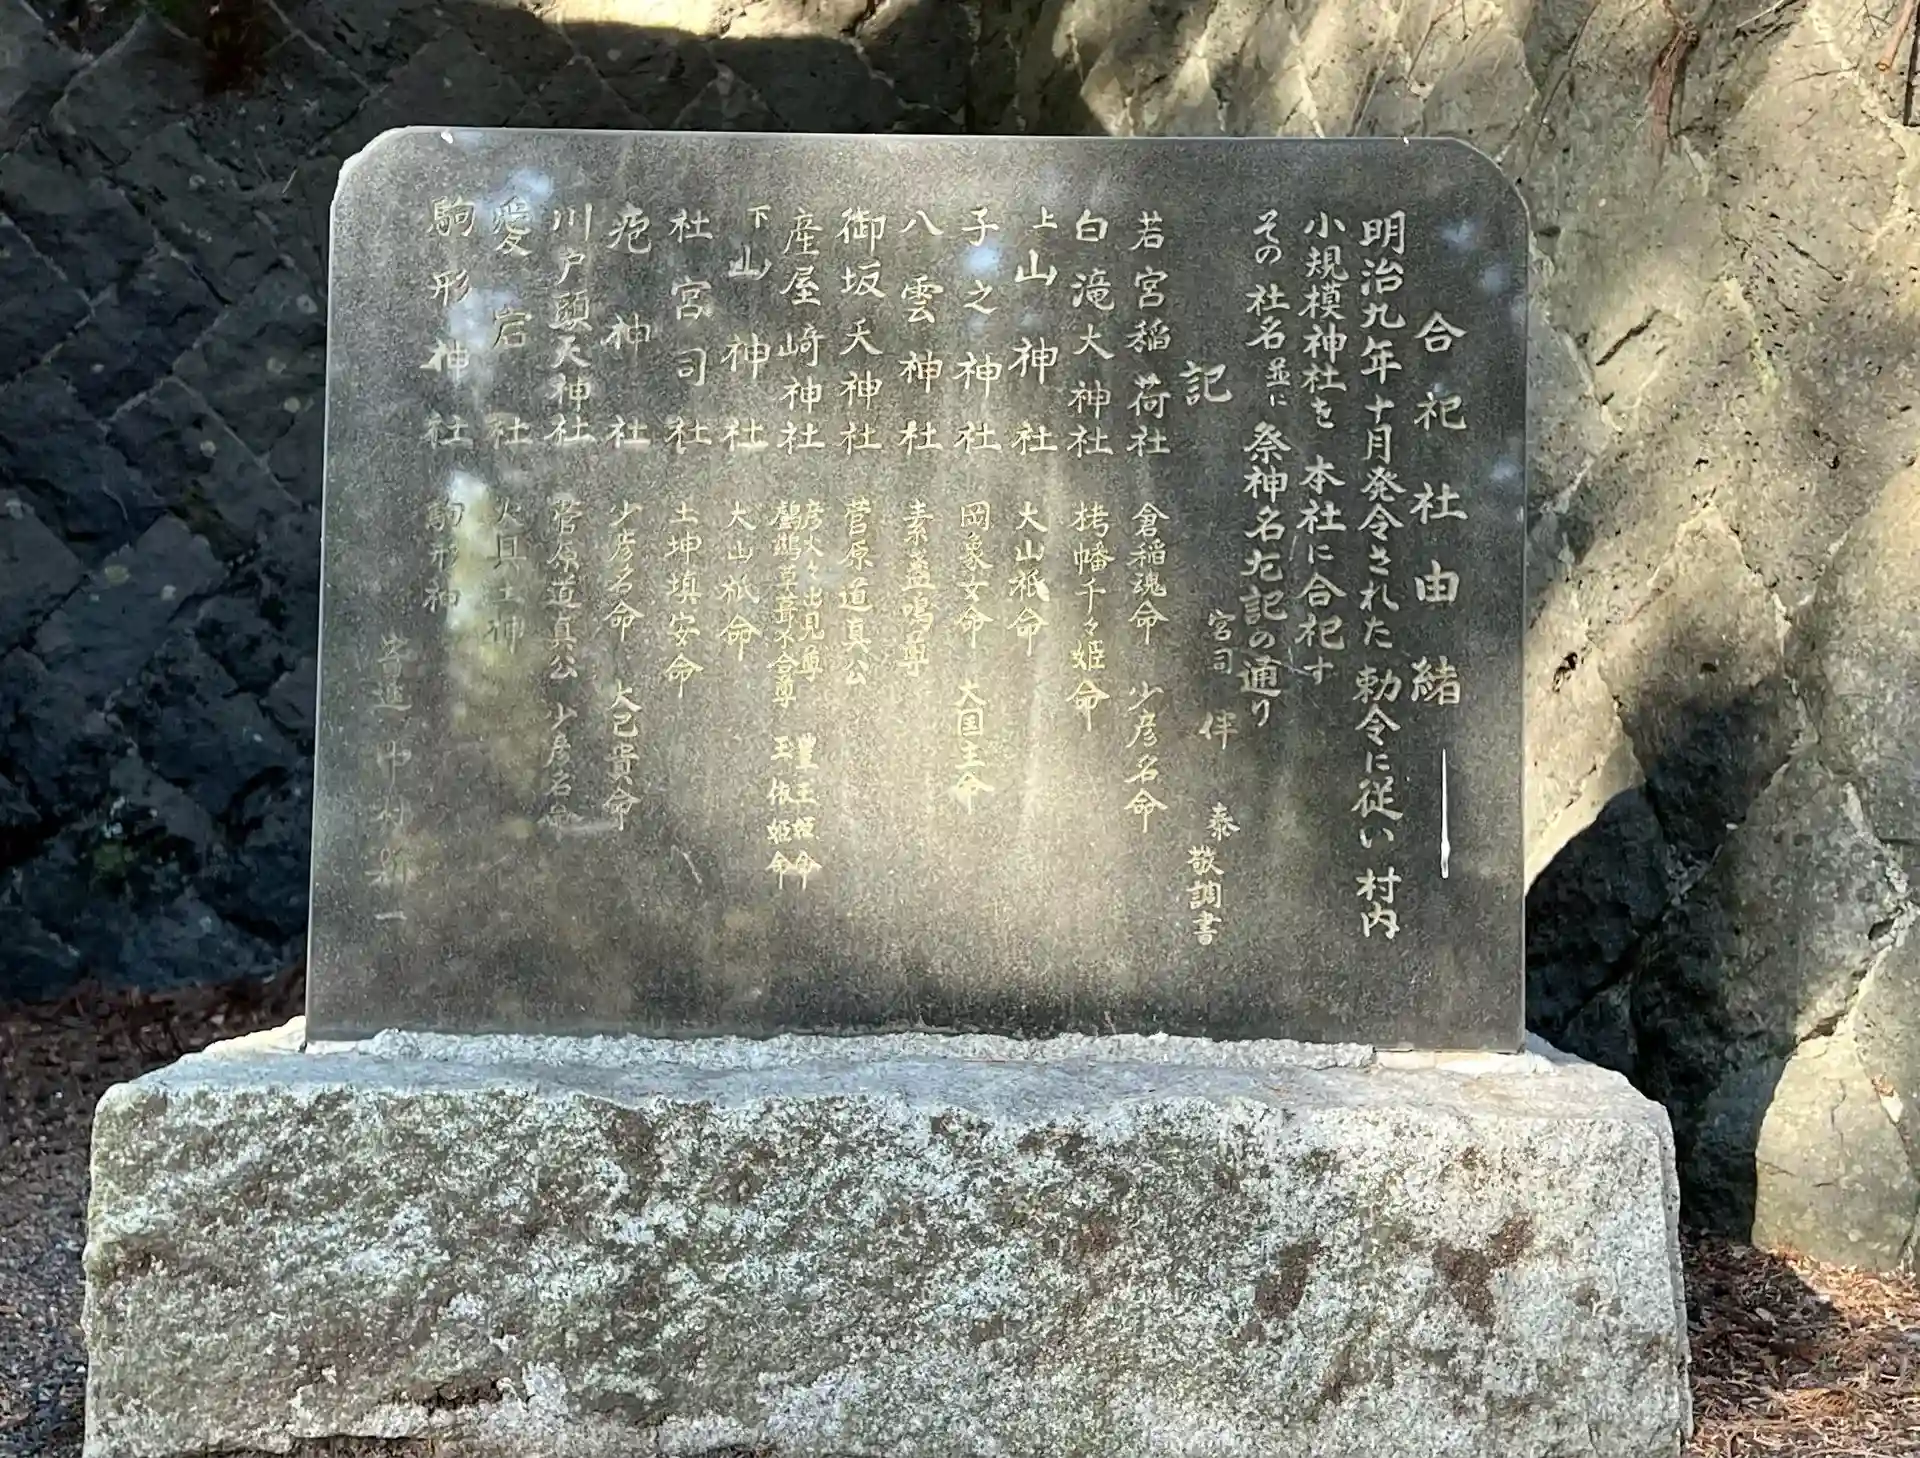 合祀社由緒
明治九年十月発令された勅令に従い村内
小規模神社を本社に合祀す
その社名並に祭神名左記の通り
宮司 伴 泰 敬調書
記
若宮稲荷社 倉稲魂命 少彦名命
白滝大神社 栲幡千々姫命
上山神社 大山祇命
子之神社 岡象女命 大国主命
八雲神社 素盞嗚尊
御坂天神社 菅原道真公
産屋崎神社 彦火々出見尊 豊玉姫命
鸕鷀草葺不合尊 玉依姫命
下山神社 大山祇命
社宮司社 土坤埴安命
疱神社 少彦名命 大己貴命
川戸頭天神社 菅原道真公 少彦名命
愛宕社 火具土神
駒形神社 駒形神
中村 一